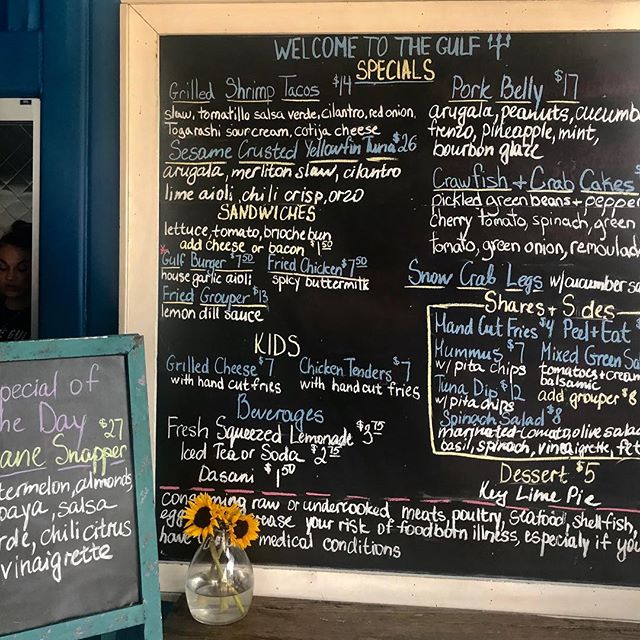 WELCOME TO THE GULF
SPECIALS
Grilled Shrimp Tacos $14
slaw, tomatillo salsa verde, cilantro, red onion,
Togarashi sour cream, cotija cheese
Sesame Crusted Yellowfin Tuna $26
arugala, merliton slaw, cilantro
lime aioli, chili crisp, orzo
SANDWICHES
lettuce, tomato, brioche bun
add cheese or bacon $1.50
*Gulf Burger $7.50
house garlic aioli
Fried Chicken $7.50
spicy buttermilk
Fried Grouper $13
lemon dill sauce
KIDS
Grilled Cheese $7
with hand cut fries
Chicken Tenders $7
with hand cut fries
Beverages
Fresh Squeezed Lemonade $3.75
Iced Tea or Soda $2.75
Dasani $1.50
Pork Belly $17
arugala, peanuts, cucumb
frenzo, pineapple, mint,
bourbon glaze
Crawfish + Crab Cakes $
pickled green beans + pepper
cherry tomato, spinach, green
tomato, green onion, remoulad
Snow Crab Legs w/cucumber sa
Shares + Sides
Hand Cut Fries $4
Peel + Eat $
Hummus $7
w/ pita chips
Mixed Green Sa
tomatoes + cream
balsamic
add grouper $8
Tuna Dip $12
w/ pita chips
Spinach Salad $8
marinated tomato, olive salad
basil, spinach, vinaigrette, fet
Dessert $5
Key Lime Pie
consuming raw or undercooked meats, poultry, seafood, shell-fish,
egg ease your risk of foodborn illness, especialy if you
have medical conditions
pecial of
he Day
$27
ane Snapper
termelon, almonds,
paya, salsa
rde, chili citrus
vinaigrette